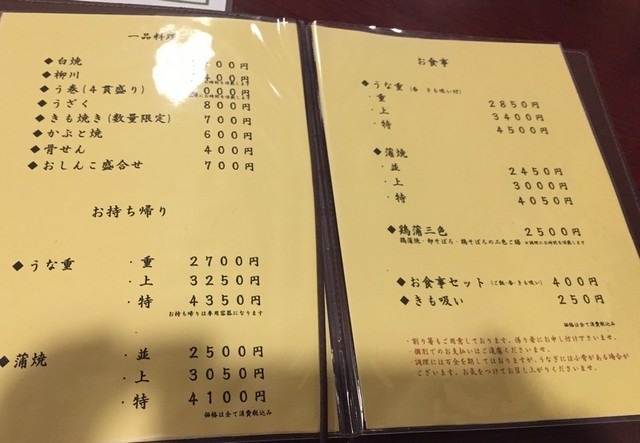 一品料理
◆白焼 00円
◆柳川 00円
◆う巻(4貫盛り) 000円
◆うざく 800円
◆きも焼き(数量限定) 700円
◆かぶと焼 600円
◆骨せん 400円
◆おしんこ盛合せ 700円
お持ち帰り
◆うな重 ・重 2700円
・上 3250円
・特 4350円
お持ち帰りは専用容器になります
◆蒲焼 ・並 2500円
・上 3050円
・特 4100円
価格は全て消費税込み
お食事
◆うな重(香・きも吸い付)
・重 2850円
・上 3400円
・特 4500円
◆蒲焼
・並 2450円
・上 3000円
・特 4050円
◆鶏蒲三色 2500円
鶏蒲焼・卵そぼろ・鶏そぼろの三色ご膳 ※調理にお時間を頂戴します
◆お食事セット(ご飯・香・きも吸い) 400円
◆きも吸い 250円
価格は全て消費税込み
・割り箸もご用意しております。係り者にお申し付け下さいませ。
・個別でのお支払いはご遠慮くださいませ。
・調理には万全を期しておりますが、うなぎには小骨がある場合が
ございます。お気をつけてお召し上がりくださいませ。